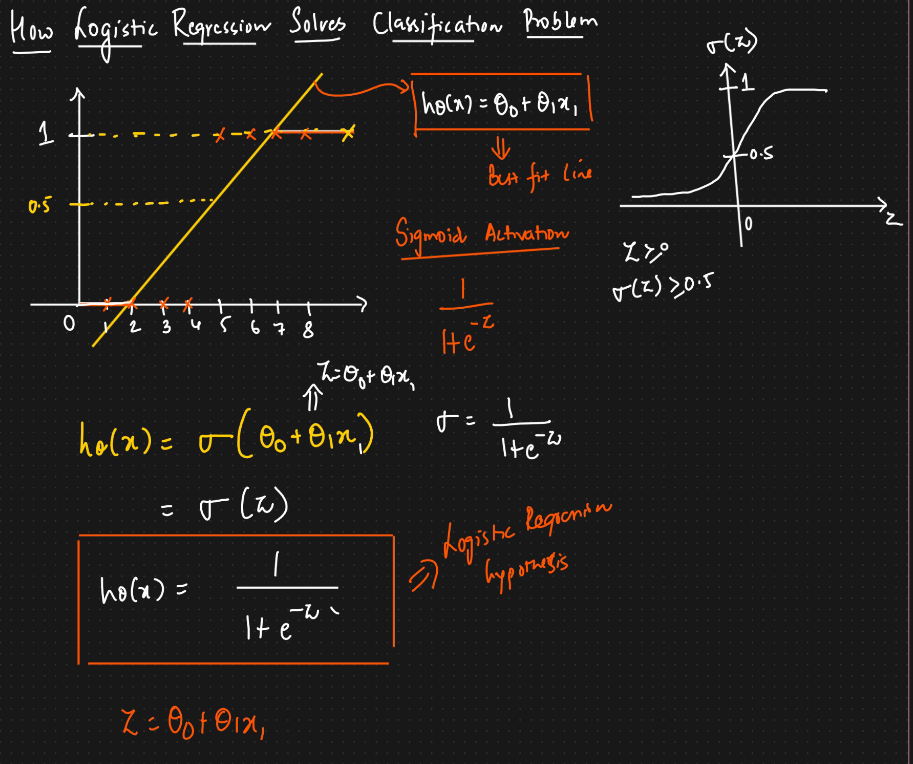 How Logistic Regression Solves Classification Problem
σ(z)
1
0.5
0
z
z ≥ 0
σ(z) ≥ 0.5
hθ(x) = θ0 + θ1x1
⇓
Best fit line
1
0.5
0 1 2 3 4 5 6 7 8
Sigmoid Activation
1
1+e^-z
z = θ0 + θ1x1
⇑
hθ(x) = σ(θ0 + θ1x1)
σ = 1 / 1+e^-z
= σ(z)
hθ(x) = 1 / 1+e^-z
⇒ Logistic Regression
hypothesis
z = θ0 + θ1x1